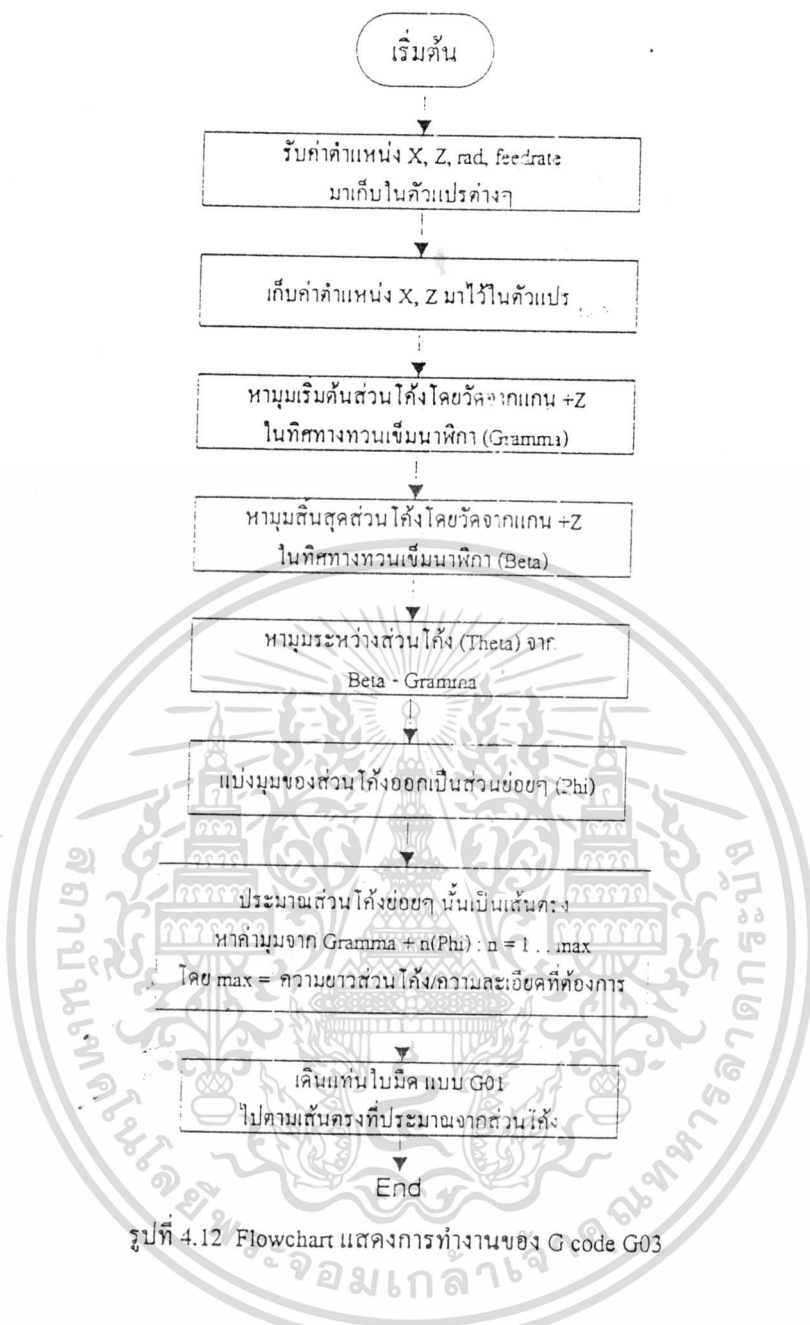 เริ่มต้น
รับค่าตำแหน่ง X, Z, rad, feedrate
มาเก็บในตัวแปรต่างๆ
เก็บค่าตำแหน่ง X, Z มาไว้ในตัวแปร
หามุมเริ่มต้นส่วนโค้งโดยวัดจากแกน +Z
ในทิศทางทวนเข็มนาฬิกา (Gramma)
หามุมสิ้นสุดส่วนโค้งโดยวัดจากแกน +Z
ในทิศทางทวนเข็มนาฬิกา (Beta)
หามุมระหว่างส่วนโค้ง (Theta) จาก
Beta - Gramma
แบ่งมุมของส่วนโค้งออกเป็นส่วนย่อยๆ (Phi)
ประมาณส่วนโค้งย่อยๆ นั้นเป็นเส้นตรง
หาค่ามุมจาก Gramma + n(Phi) : n = 1 . . max
โดย max = ความยาวส่วนโค้ง/ความละเอียดที่ต้องการ
เดินแท่นใบมีด แบบ G01
ไปตามเส้นตรงที่ประมาณจากส่วนโค้ง
End
รูปที่ 4.12 Flowchart แสดงการทำงานของ G code G03
สถาบันเทคโนโลยีพระจอมเกล้าเจ้าคุณทหารลาดกระบัง